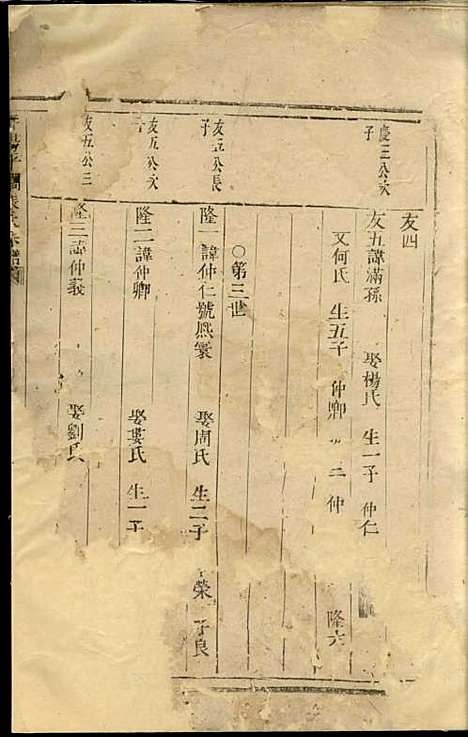 友四
慶三公次子
友五諱滿孫 娶楊氏 生一子 仲仁
又何氏 生五子 仲卿 仲 隆六
○第三世
友五公長子
隆一諱仲仁號熙寰 娶周氏 生二子 榮 子良
友五公次子
隆二諱仲卿 娶婁氏 生一子
友五公三
隆三諱仲義 娶劉氏